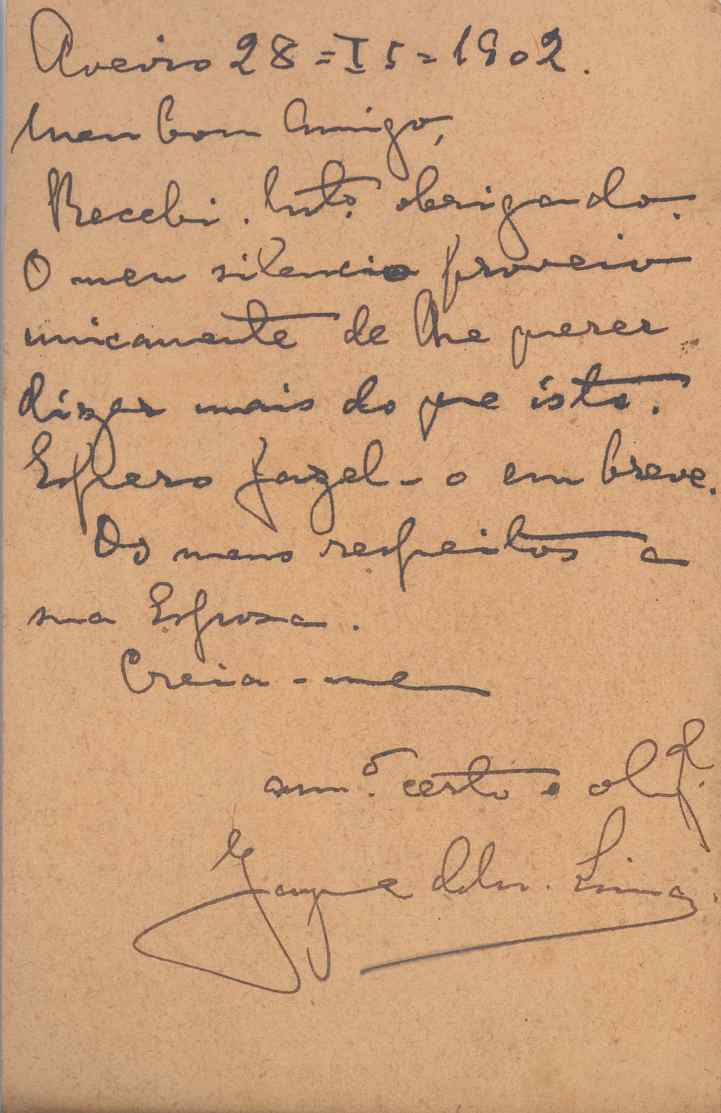 Aveiro 28=IX=1902.
Meu bom Amigo,
Recebi. Mto. obrigado.
O meu silencio proveio
unicamente de lhe querer
dizer mais do que isto.
Espero fazel-o em breve.
Os meus respeitos a
sua Esposa.
Creia-me
amo. certo e obgd.
Jayme de Lima